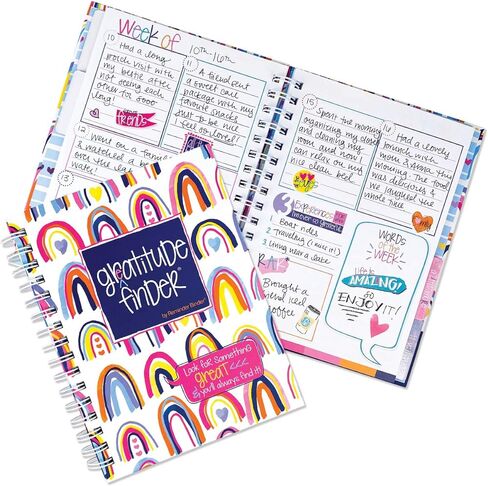 Week of 10th-16th
10 Had a long
lunch visit with
my bestie after
not seeing each
other for sooo
long!
FRIENDS
11 A friend sent
a sweet care
package with my
favorite snacks
Such a surprise to
feel so loved!
12 Went on a family
& watched a
over the lake
13
15 Spent the morning
organizing my closet
and cleaning my
room and now I
can relax on my
nice clean bed
16 Had a lovely
brunch with
mom & Anna this
morning. The food
was delicious &
we laughed the
whole time
3 EXPERIENCES
I'm over so grateful
1. Boat rides
2. Traveling (I miss it!)
3. Living near a lake
Brought a
new iced
coffee
WORDS
of the
WEEK!
Life is
AMAZING!
GO
ENJOY IT!
gratitude
finder®
by Reminder Binder®
Look for something
great <<<
& you'll always find it!